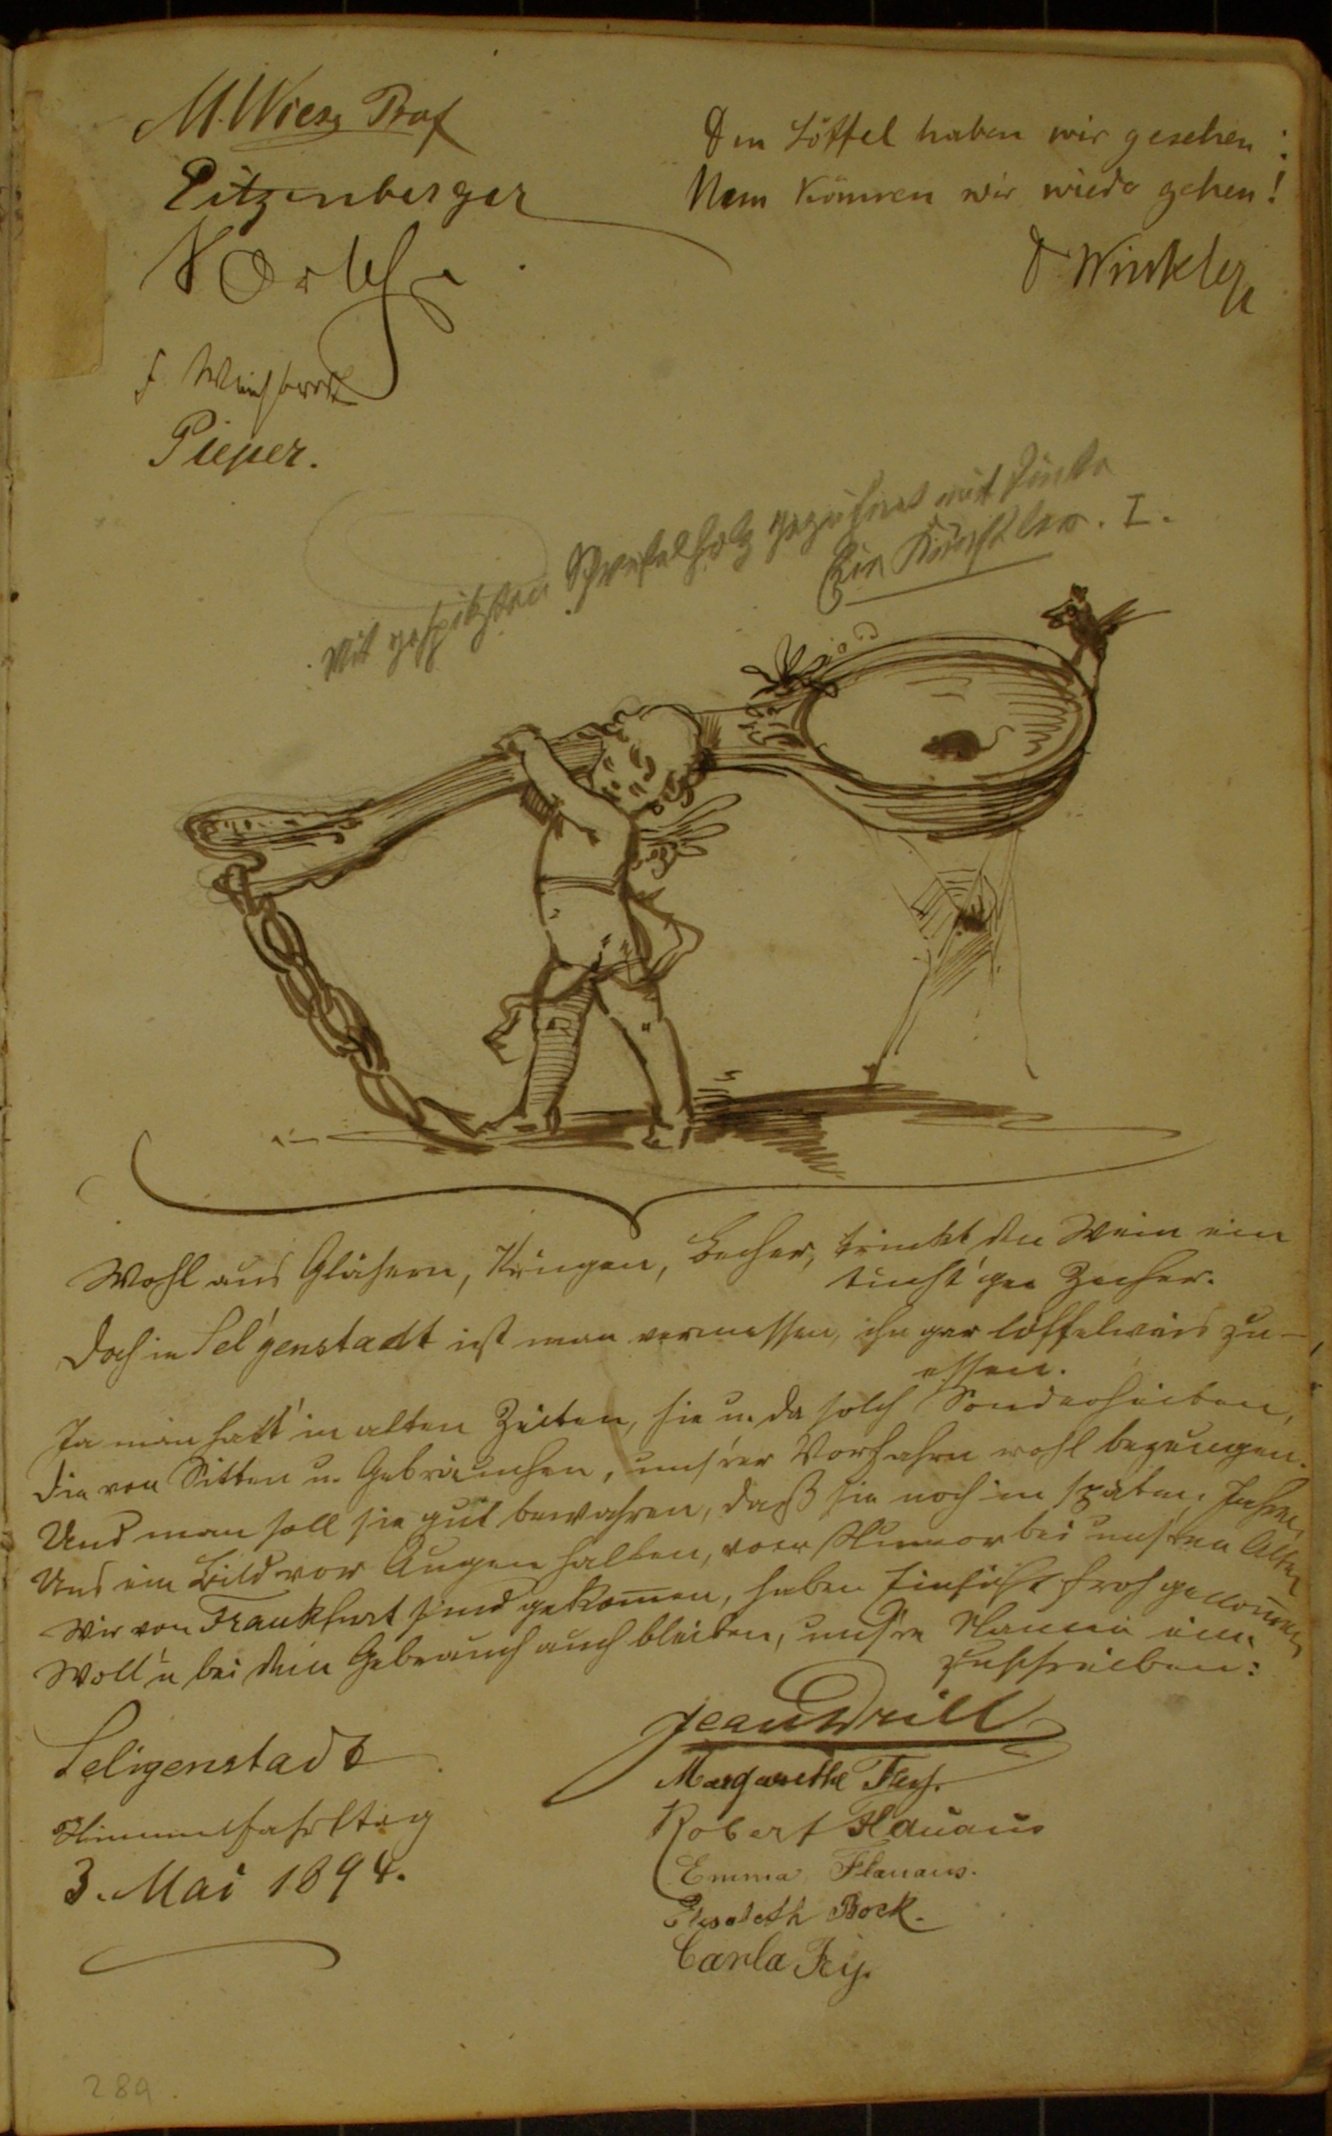 M. Wiesz Prof
Pitzenberger
Pieper.
Den Löffel haben wir gesehen:
Nun können wir wieder gehen!
Winkler
Mit gespitzten Schwefelholz gezeichnet mit Tinte
Ein Künstler. I.
Wohl aus Gläsern, Krügen, Becher, trinkt den Wein ein
tücht'ger Zecher.
Doch in Sel'genstadt ist man vermessen, ihn gar löffelweis zu-
essen.
Ja man hatt' in alten Zeiten, hie u. da solch Sonderheiten,
Die von Sitten u. Gebräuchen, uns'rer Vorfahrn wohl bezeugen.
Und man soll sie gut bewahren, daß sie noch in späten Jahren,
Uns ein Bild vor Augen halten, vom Humor bei unsren Alten
Wir von Frankfurt sind gekom̅en, haben Einsicht froh genom̅en
Woll'n bei dem Gebrauch auch bleiben, unsre Namen ein-
zuschreiben:
Seligenstadt
Himmelfahrtstag
3. Mai 1894.
Jean Drill
Margarethe
Robert Hanaus
Emma Hanaus.
Elisabeth Bock.
Carla
289.